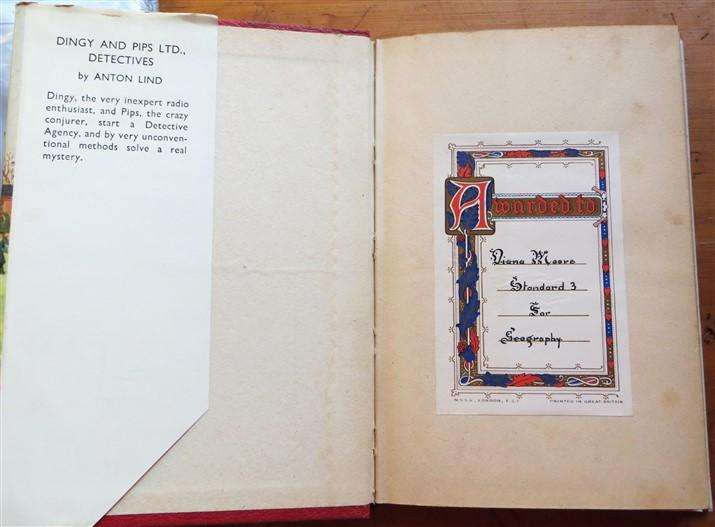 DINGY AND PIPS LTD.,
DETECTIVES
by ANTON LIND
Dingy, the very inexpert radio
enthusiast, and Pips, the crazy
conjurer, start a Detective
Agency, and by very unconven-
tional methods solve a real
mystery.
Awarded to
Diana Moore
Standard 3
For
Geography
N.S.S.U., LONDON, E.C.1
PRINTED IN GREAT BRITAIN